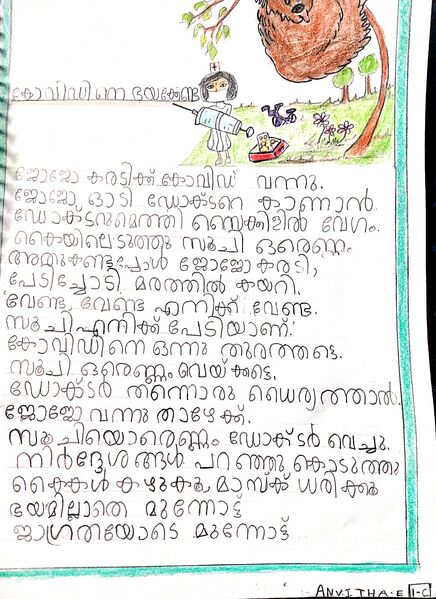 കോവിഡിനെ ഭയക്കേണ്ട
ജോജോ കരടിക്ക് കോവിഡ് വന്നു.
ജോജോ, ഓടി ഡോക്ടറെ കാണാൻ.
ഡോക്ടറുമെത്തി സൈക്കിളിൽ വേഗം.
കൈയിലെടുത്തു സൂചി ഒരെണ്ണം
അതുകണ്ടപ്പോൾ ജോജോ കരടി,
പേടിച്ചോടി മരത്തിൽ കയറി.
വേണ്ട, വേണ്ട എനിക്ക് വേണ്ട.
സൂചി എനിക്ക് പേടിയാണ്.
കോവിഡിനെ ഒന്നു തുരത്തട്ടെ.
സൂചി ഒരെണ്ണം വെയ്ക്കട്ടെ.
ഡോക്ടർ തന്നൊരു ധൈര്യത്താൽ.
ജോജോ വന്നു താഴേക്ക്.
സൂചിയൊരെണ്ണം ഡോക്ടർ വെച്ചു.
നിർദ്ദേശങ്ങൾ പറഞ്ഞു കൊടുത്തു
കൈകൾ കഴുകൂ, മാസ്ക് ധരിക്കൂ
ഭയമില്ലാതെ മുന്നോട്ട്
ജാഗ്രതയോടെ മുന്നോട്ട്
ANVITHA.E I-C